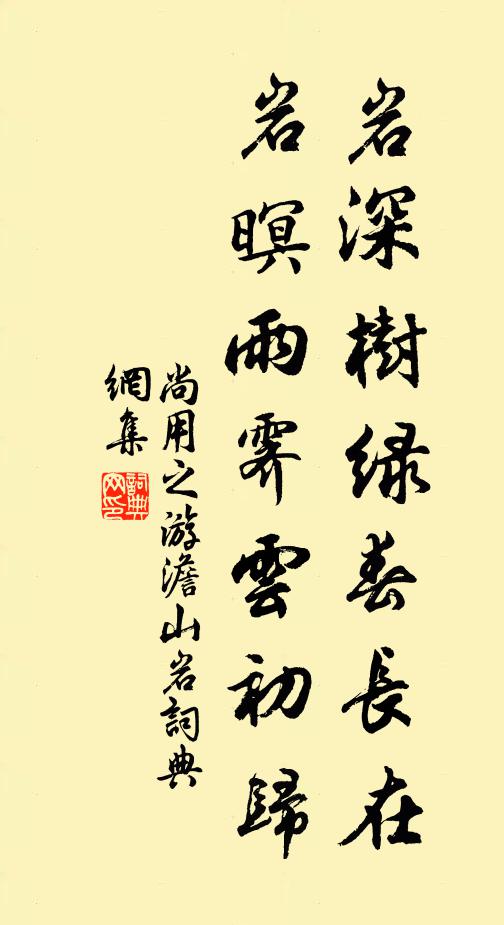 岩深樹緑春長在
岩暝雨霽雲初歸
尚用之游澹山岩詞典
網集
詞典網印